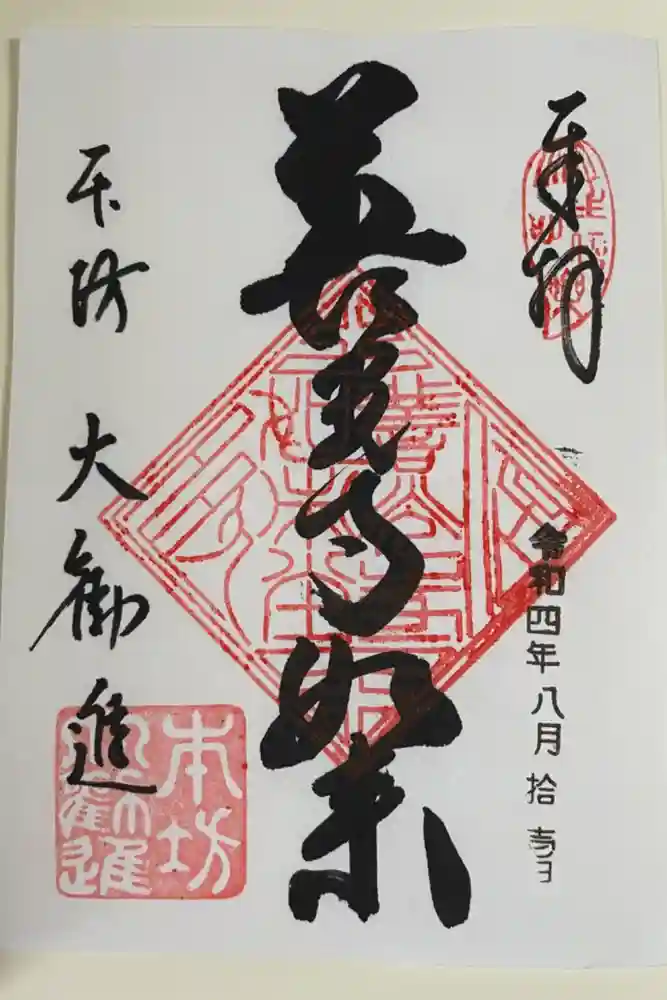 奉拝
令和四年八月拾壱日
善光寺如来
本坊 大勧進
本坊
大勧進